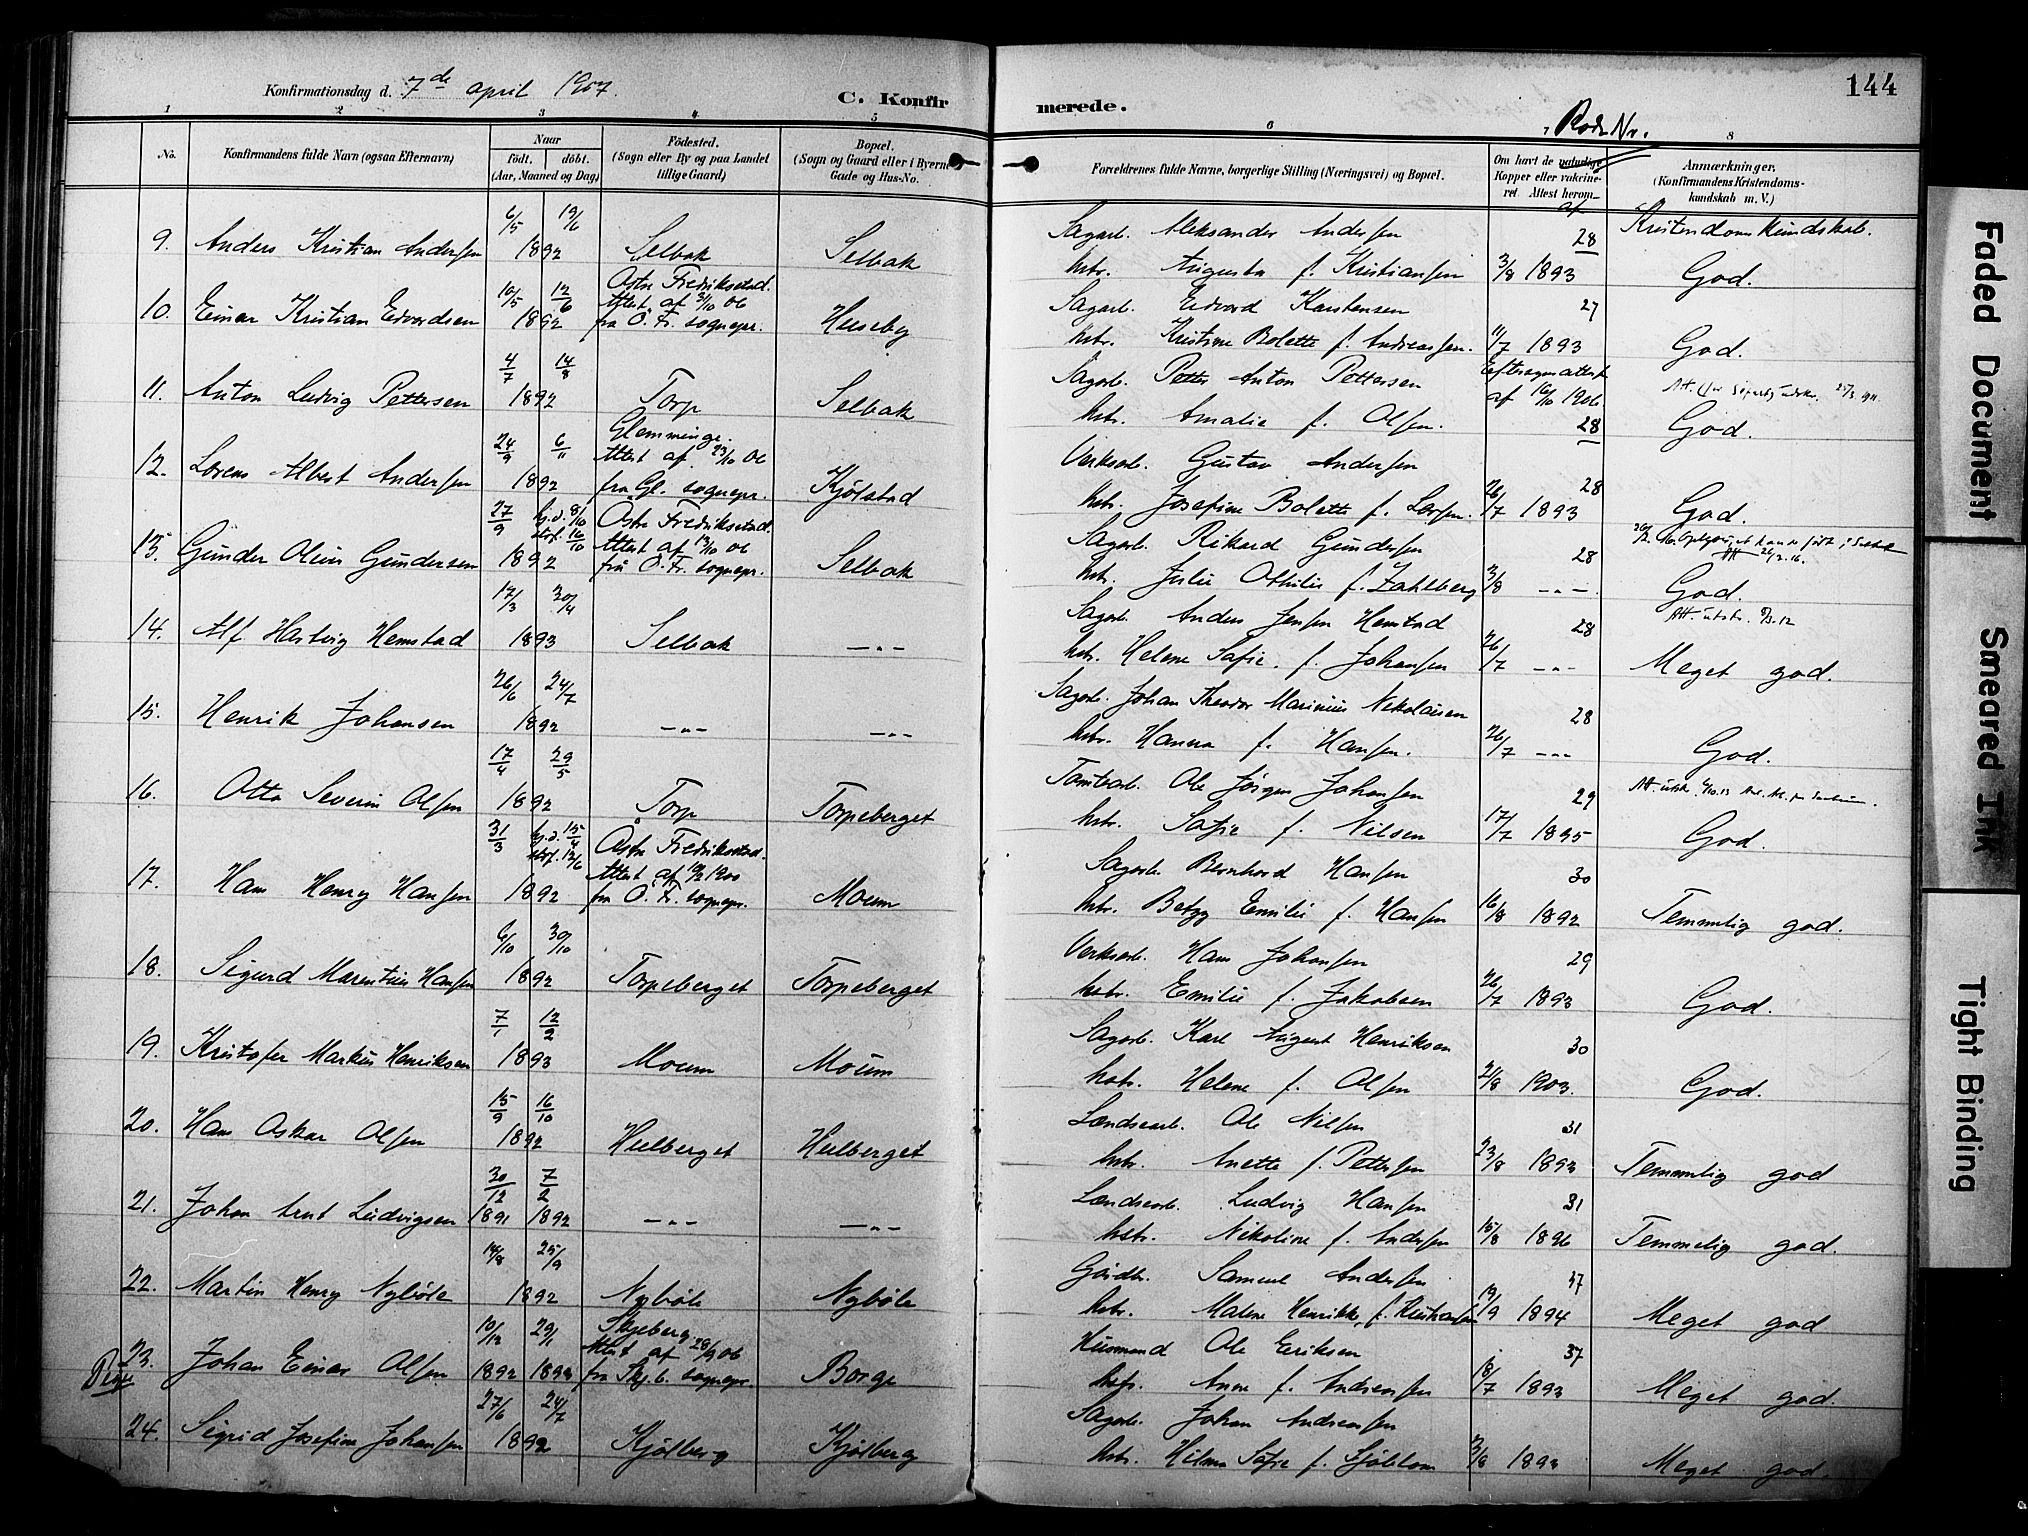 144
Konfirmationsdag d. 7de april 1907.
C. Konfirmerede.
Rode Nr.
1 2 3 4 5 6 8
No. Konfirmandens fulde Navn (ogsaa Efternavn) Naar födt. döbt. (Aar, Maaned og Dag) Födested. (Sogn eller By og paa Landet tillige Gaard) Bopæl. (Sogn og Gaard eller i Byerne Gade og Hus-No. Forældrenes fulde Navne, borgerlige Stilling (Næringsvei) og Bopæl. Om havt de naturlige Kopper eller vakcineret Attest herom Anmærkninger. (Konfirmandens Kristendomskundskab m. V.)
af Kristendomskundskab.
9. Anders Kristian Andersen 6/5 19/6 1892 Selbak Selbak Sagarb. Aleksander Andersen 28
hstr. Augusta f. Kristiansen 3/8 1893 God.
10. Einar Kristian Edvardsen 10/5 12/6 1892 Östre Fredriksstad. Attest af 3/10 06 fra Ö. Fr. sognepr. Heieby Sagarb. Edvard Karstensen 27
hstr. Kristine Bolette f. Andreassen. 11/7 1893 God.
11. Anton Ludvig Pettersen 4/7 14/8 1892 Torp Selbak Sagarb. Petter Anton Pettersen Eftersynsattest af 16/10 1906
hstr. Amalie f. Olsen. 28 God.
12. Lorens Albert Andersen 24/9 6/11 1892 Glemminge. Attest af 23/10 06 fra Gl. sognepr. Kjölstad Verksarb. Gustav Andersen 28
hstr. Josefine Bolette f. Larsen. 26/7 1893 God.
13. Gunder Olius Gundersen 27/9 hj.d. 8/10 stadf. 16/10 1892 Östre Fredriksstad. Attest af 13/10 06 fra Ö. Fr. sognepr. Selbak Sagarb. Rikard Gundersen 28
hstr. Julie Othilie f. Zahlberg 3/8 -"- God.
14. Alf Hartvig Hemstad 17/3 30/4 1893 Selbak -"- Sagarb. Anders Jensen Hemstad 28 Att. utstr. 12
hstr. Helene Sofie f. Johansen 26/7 -"- Meget god.
15. Henrik Johansen 26/6 24/7 1892 -"- -"- Sagarb. Johan Theodor Marinius Nikolaisen 28
hstr. Hanna f. Hansen. 26/7 -"- God.
16. Otto Severin Olsen 17/4 29/5 1892 Torp Torpeberget Tomtearb. Ole Jörgen Johansen 29
hstr. Sofie f. Nilsen 17/7 1895 God.
17. Hans Henry Hansen 31/3 hj.d. 15/4 stadf. 12/6 1892 Östre Fredriksstad. Attest af 1900 fra Ö. Fr. sognepr. Moum Sagarb. Bernhard Hansen 30
hstr. Betzy Emilie f. Hansen 16/8 1892 Temmelig god.
18. Sigurd Marentius Hansen 6/10 30/10 1892 Torpeberget Torpeberget Verksarb. Hans Johansen 29
hstr. Emilie f. Jakobsen 26/7 1893 God.
19. Kristofer Markus Henriksen 7/1 12/2 1893 Moum Moum Sagarb. Karl August Henriksen 30
hstr. Helene f. Olsen 21/8 1903. God.
20. Hans Oskar Olsen 15/9 16/10 1892 Hulberget Hulberget Landsarb. Ole Nilsen 31
hstr. Anette f. Pettersen 23/8 1893 Temmelig god
21. Johan Arnt Ludvigsen 30/12 7/2 1891 1892 -"- -"- Landsarb. Ludvig Hansen 31
hstr. Nikoline f. Andersen 15/8 1896 Temmelig god.
22. Martin Henry Nyböle 14/8 25/9 1892 Nyböle Nyböle Gårdbr. Samuel Andersen 37
hstr. Malene Henrikke f. Kristiansen 19/9 1894 Meget god
23. Johan Einar Olsen 10/12 29/1 1892 1893 Skjeberg. Attest af 28/9 06 fra Skjb. sognepr. Borge Husmand Ole Eriksen 37
hstr. Anne f. Andreassen 18/7 1893 Meget god.
Piger
24. Sigrid Josefine Johansen 27/6 24/7 1892 Kjölberg Kjölberg Sagarb. Johan Andreassen
hstr. Hilma Sofie f. Sjöblom 3/8 1893 Meget god.
Faded Document
Smeared Ink
Tight Binding